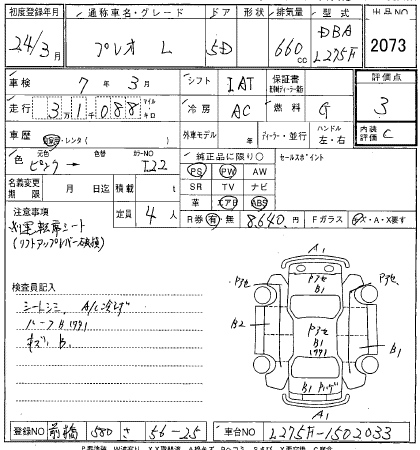 初度登録年月 通称車名・グレード ドア 形状 排気量 型式 出品NO
24/3月 プレオ L 5D 660cc DBA L275F 2073
車検 7年 3月 シフト IAT 保証書 燃料 G 評価点 3
走行 3万1千088 マイル キロ 冷房 AC 燃料 G
車歴 自家用・レンタ( ) 外車モデル 年 ディーラー・並行 ハンドル 左・右 内装評価 C
色 元色 ピンク → 色替 カラーNO I22 純正品に限り○ セールスポイント
名義変更期限 月 日迄 積載 t
PS PW AW
SR TV ナビ
革 エアB ABS
定員 4人
R券 有・無 8,640円 Fガラス ・A・X要す
注意事項
運転席シート
(リフトアップレバー破損)
検査員記入
シートシミ A/C
キズ B
A1
B1
B2
B1
B1
A1
登録NO 前橋 580 さ 56-25 車台NO L275F-1502033